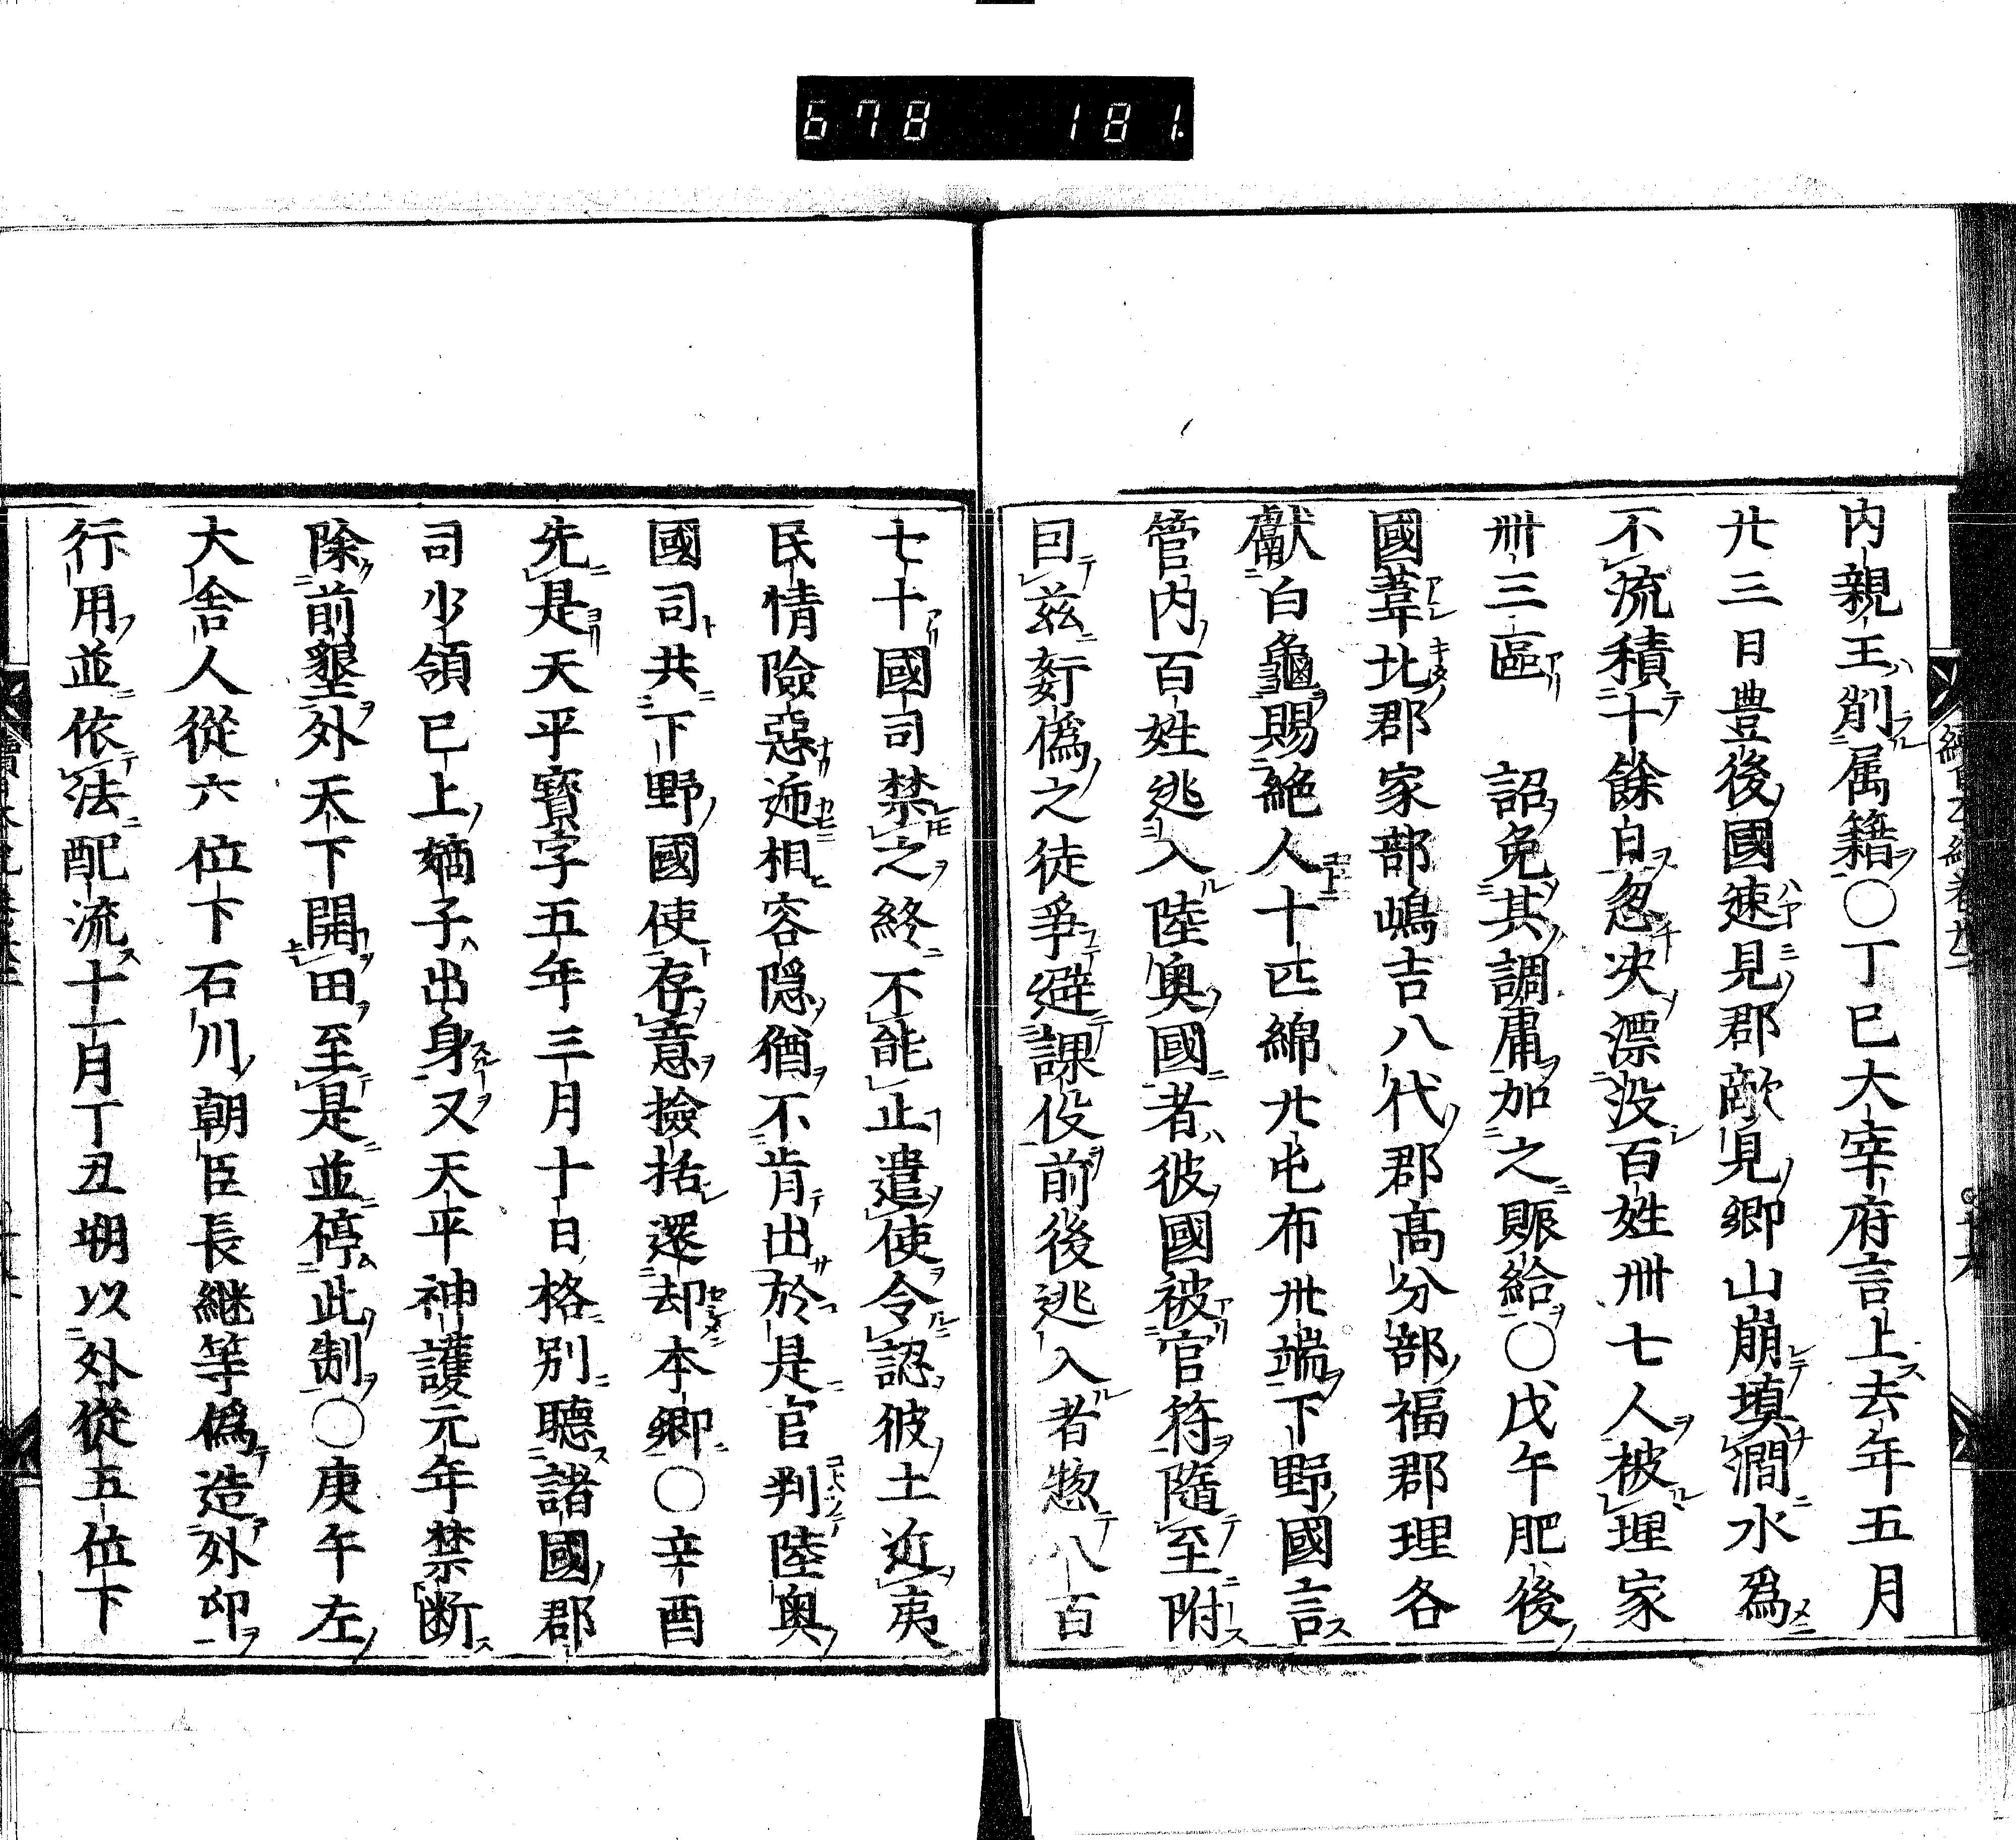 678 181.
内親王削属籍○丁巳大宰府言上去年五月
廿三日豊後國速見郡敵見郷山崩塡澗水爲
不流積十餘日忽决漂没百姓卌七人被埋家
卌三區 詔免其調庸加之賑給○戊午肥後
國葦北郡家部嶋吉八代郡髙分部福郡理各
獻白龜賜絁人十匹綿廿屯布卅端下野國言
管内百姓逃入陸奥國者彼國被官符隨至附
曰茲姧僞之徒爭避課役前後逃入者惣八百
七十國司禁之終不能止遣使令認彼土近夷
民情險惡逓相容隠猶不肯出於是官判陸奥
國司共下野國使存意撿括還却本郷○辛酉
先是天平寳字五年三月十日格別聽諸國郡
司少領已上嫡子出身又天平神護元年禁断
除前墾外天下開田至是並停此制○庚午左
大舎人從六位下石川朝臣長継等僞造外印
行用並依法配流十一月丁丑朔以外從五位下